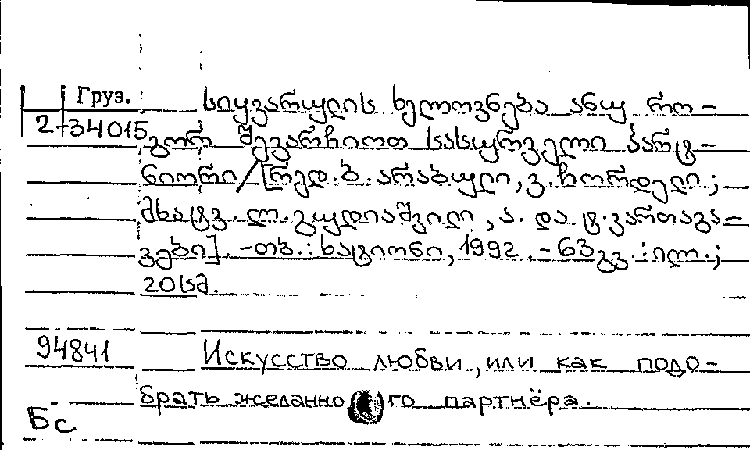 Груз.
სიყვარულის ხელოვნება ანუ რო-
2-34015
გორ შევარჩიოთ სასურველი პარტ-
ნიორი/[რედ. ბ. არაბული, ვ. ჩორდელი;
მხატვ. ლ. გუდიაშვილი, ა. და ტ. ვართაგა-
ვები]. -თბ.: ხატიონი, 1992. - 63 გვ.: ილ.;
20 სმ.
94841 Искусство любви, или как подо-
брать желанного партнёра.
Бс